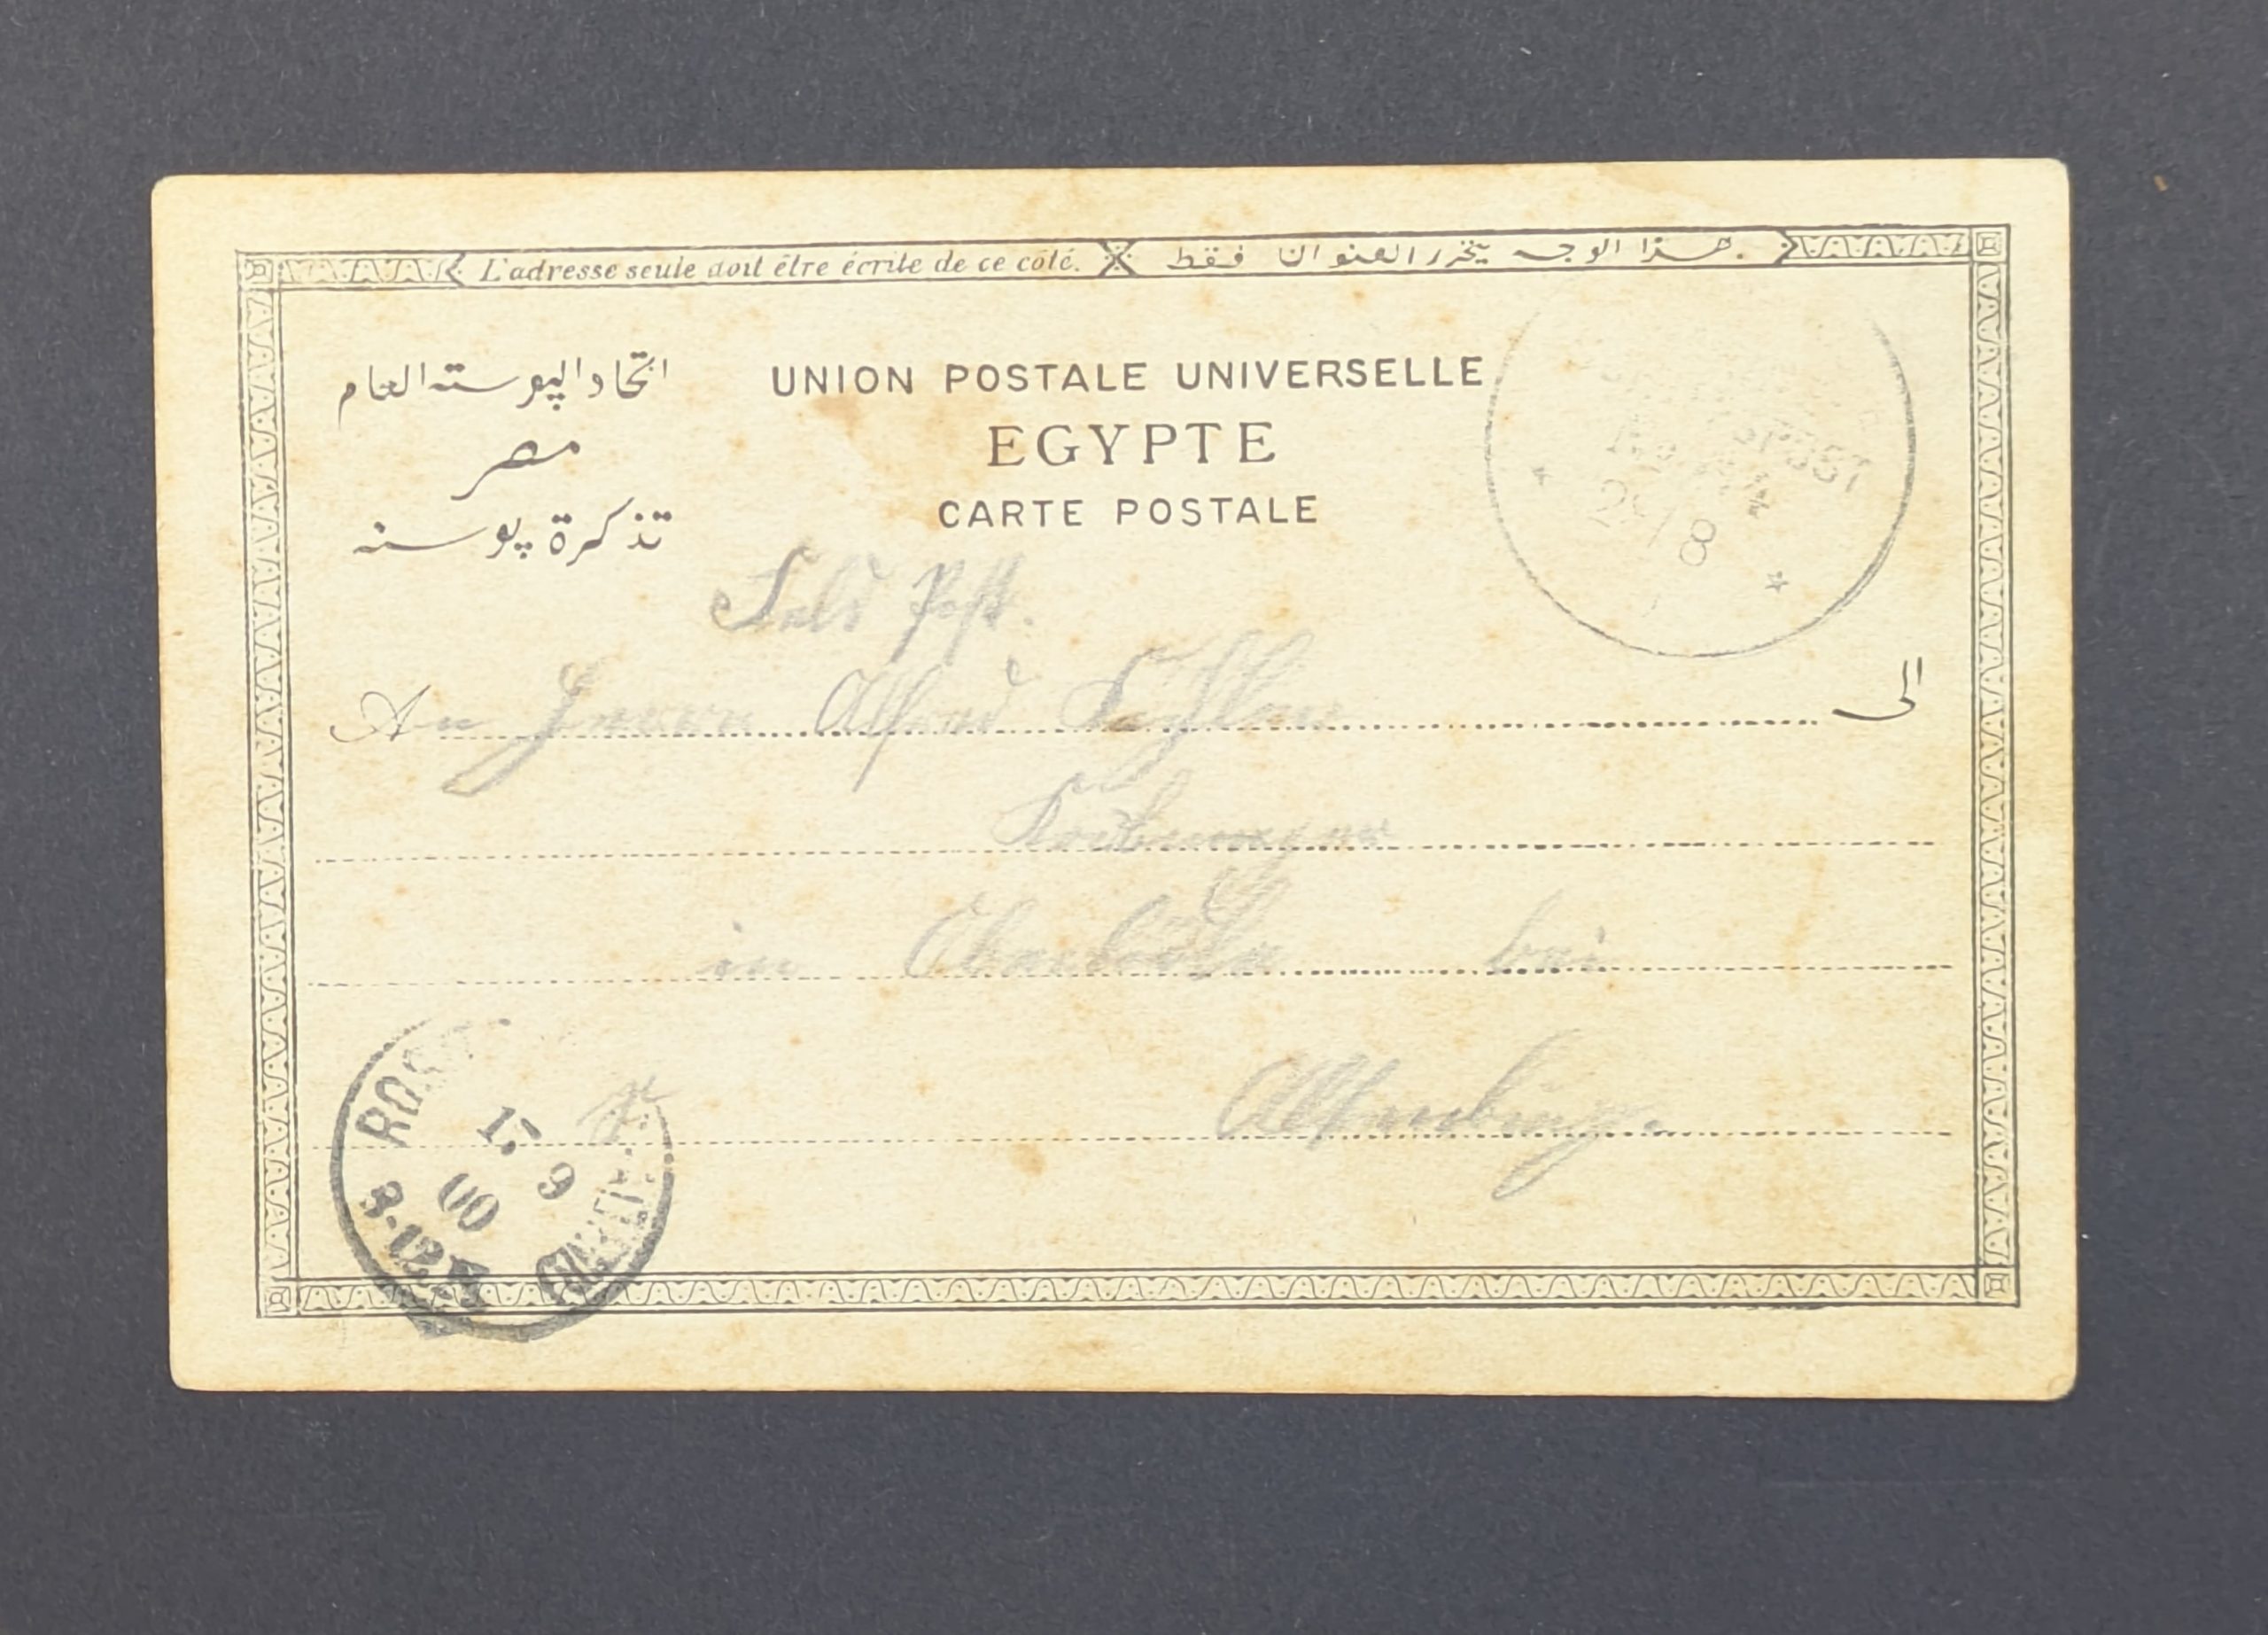 L'adresse seule doit être écrite de ce côté. هذا الوجه يتحرر العنوان فقط.
اتحاد البوسته العام
مصر
تذكرة پوسته
UNION POSTALE UNIVERSELLE
EGYPTE
CARTE POSTALE
28/8
Feld Post.
An Herrn Alfred
الى
in bei
Altenburg.
17 9
00
8-12 V